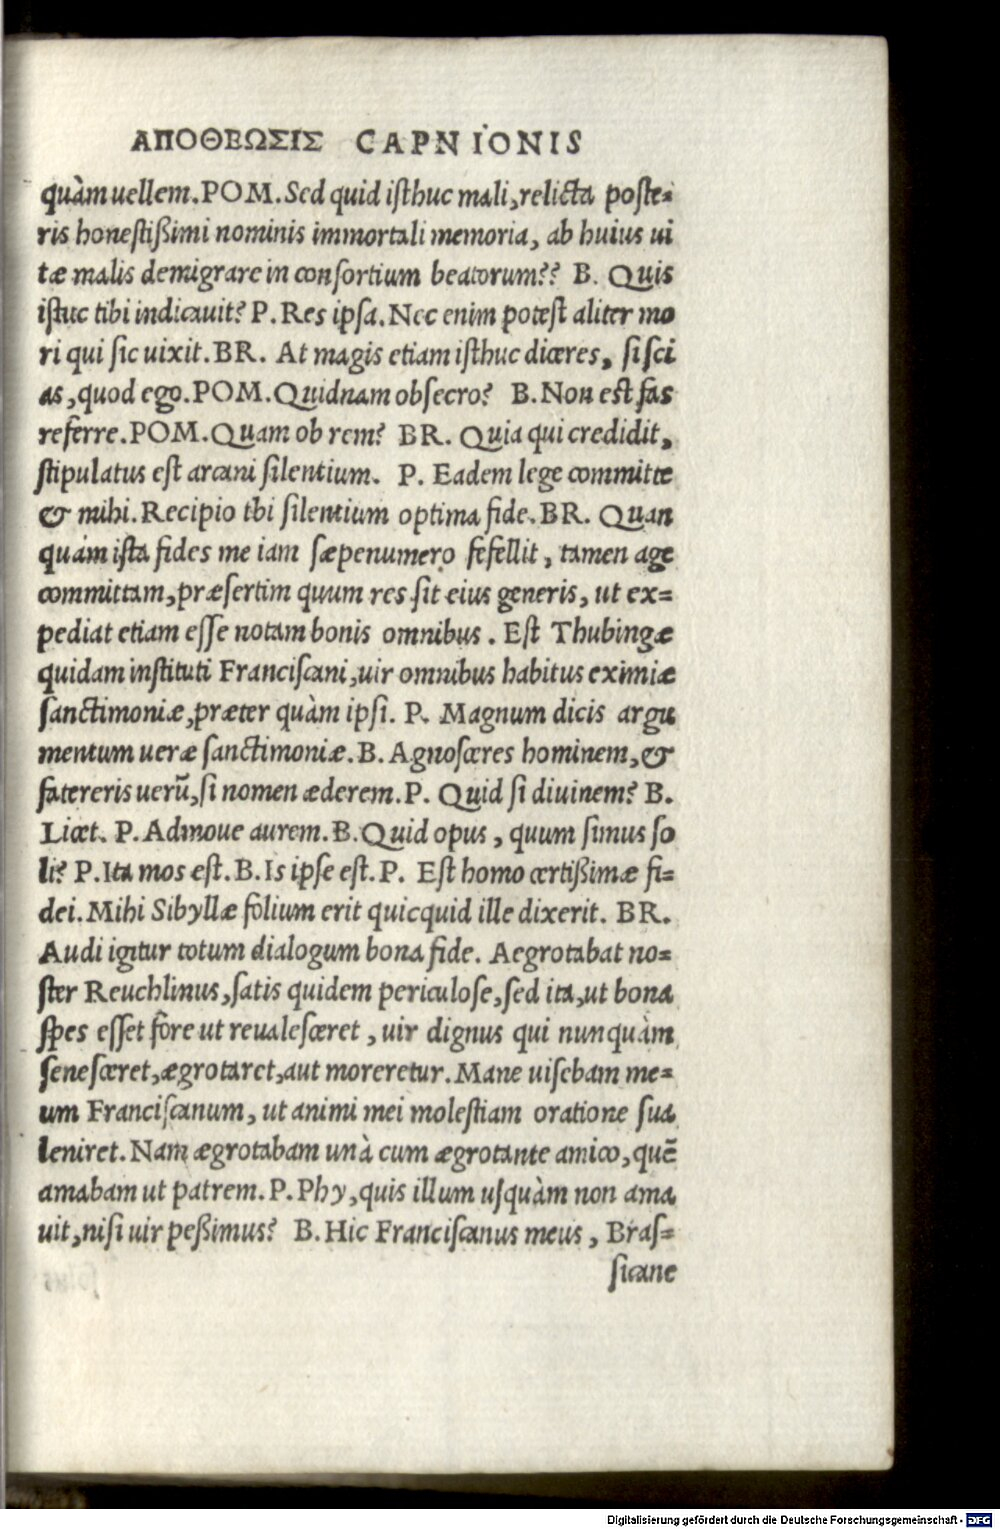 ΑΠΟΘΕΩΣΙΣ CAPNIONIS
quàm uellem. POM. Sed quid isthuc mali, relicta poste=
ris honestißimi nominis immortali memoria, ab huius ui
tæ malis demigrare in consortium beatorum?? B. Quis
istuc tibi indicauit? P. Res ipsa. Nec enim potest aliter mo
ri qui sic uixit. BR. At magis etiam isthuc diceres, si sci
as, quod ego. POM. Quidnam obsecro? B. Non est fas
referre. POM. Quam ob rem? BR. Quia qui credidit,
stipulatus est arcani silentium. P. Eadem lege committe
& mihi. Recipio tbi silentium optima fide. BR. Quan
quám ista fides me iam sæpenumero fefellit, tamen age
committam, præsertim quum res sit eius generis, ut ex=
pediat etiam esse notam bonis omnibus. Est Thubingæ
quidam instituti Franciscani, uir omnibus habitus eximiæ
sanctimoniæ, præter quàm ipsi. P. Magnum dicis argu
mentum ueræ sanctimoniæ. B. Agnosceres hominem, &
fatereris uerū, si nomen æderem. P. Quid si diuinem? B.
Licet. P. Admoue aurem. B. Quid opus, quum simus so
li? P. Ita mos est. B. Is ipse est. P. Est homo certißimæ fi=
dei. Mihi Sibyllæ folium erit quicquid ille dixerit. BR.
Audi igitur totum dialogum bona fide. Aegrotabat no=
ster Reuchlinus, satis quidem periculose, sed ita, ut bona
spes esset fore ut reualesceret, uir dignus qui nunquàm
senesceret, ægrotaret, aut moreretur. Mane uisebam me=
um Franciscanum, ut animi mei molestiam oratione sua
leniret. Nam ægrotabam unà cum ægrotante amico, quē
amabam ut patrem. P. Phy, quis illum usquàm non ama
uit, nisi uir peßimus? B. Hic Franciscanus meus, Bras=
sicane
Digitalisierung gefördert durch die Deutsche Forschungsgemeinschaft - DFG